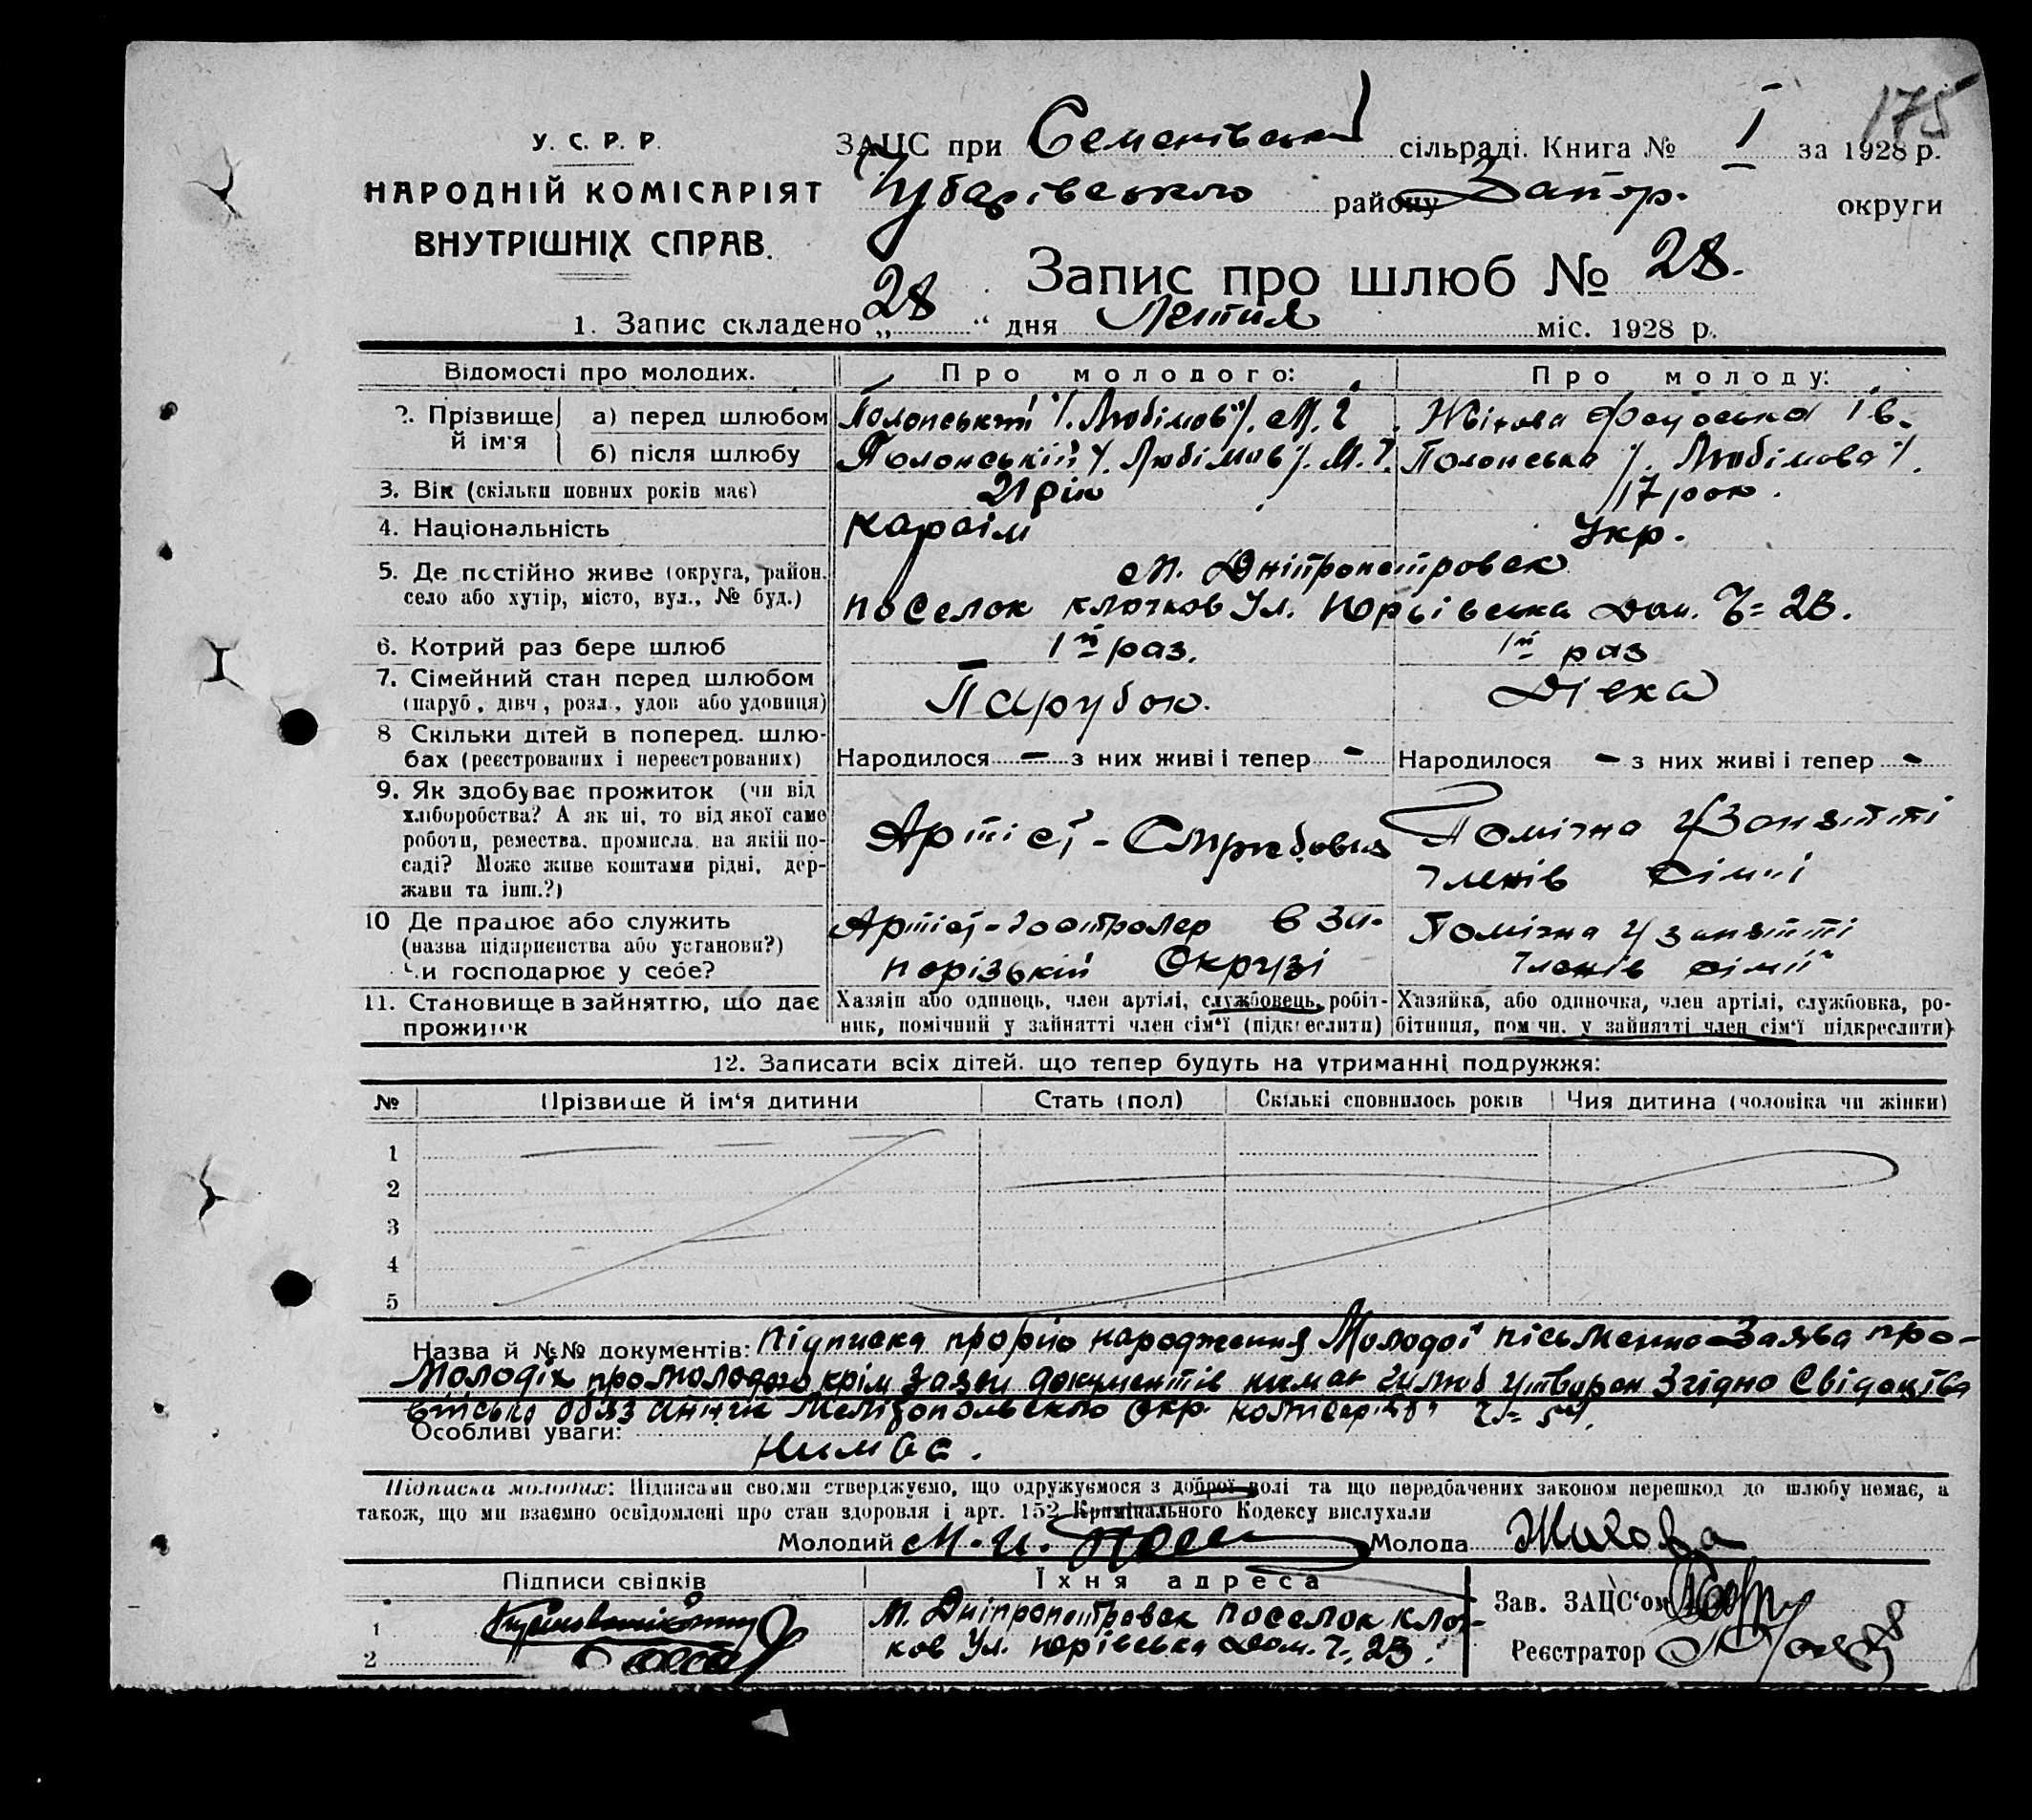 175
У. С. Р. Р.
НАРОДНІЙ КОМІСАРІЯТ
ВНУТРІШНІХ СПРАВ.
ЗАЦС при Семенівській сільраді. Книга № I за 1928 р.
Чубарівського району Запор. округи
Запис про шлюб № 28.
1. Запис складено „28“ дня Лютня міс. 1928 р.
Відомості про молодих. Про молодого: Про молоду:
2. Прізвище й ім'я а) перед шлюбом Полонський /.Любімов/. М. І. Жвікова Феодоська Ів.
б) після шлюбу Полонській /. Любімов/. М. І. Полонська /. Любімова/.
3. Вік (скільки повних років має) 21 рік 17 рок.
4. Національність Караїм Укр.
5. Де постійно живе (округа, район, м. Дніпропетровск
село або хутір, місто, вул., № буд.) поселок Клочков Ул. Юрьівська Дом. Ч= 23.
6. Котрий раз бере шлюб 1й раз. 1й раз
7. Сімейний стан перед шлюбом
(паруб, дівч, розл, удов або удовиця) Парубок. Дівка
8 Скільки дітей в поперед. шлю-
бах (реєстрованих і нереєстрованих) Народилося — з них живі і тепер - Народилося - з них живі і тепер -
9. Як здобуває прожиток (чи від
хліборобства? А як ні, то від якої саме
роботи, ремества, промисла, на якій по-
саді? Може живе коштами рідні, дер-
жави та інш.?)
Артіст - Помічна у занятті
членів сімії
10 Де працює або служить
(назва підприємства або установи?)
Чи господарює у себе?
Артіст - в За-
порізькій Окрузі
Помічна у занятті
членів сімії
11. Становище в зайняттю, що дає
прожиток
Хазяїн або одинець, член артілі, службовець, робіт-
ник, помічний у зайнятті член сім'ї (підкреслити)
Хазяйка, або одиночка, член артілі, службовка, ро-
бітниця, помічн. у зайнятті член сім'ї підкреслити)
12. Записати всіх дітей, що тепер будуть на утриманні подружжя:
№ Прізвище й ім'я дитини Стать (пол) Скількі сповнилось років Чия дитина (чоловіка чи жінки)
1
2
3
4
5
Назва й №№ документів: Підписка про народження Молодої письменно Заява про-
Молодіх про молодого крім заяви документів нимає Шлюб утворен Згідно Свідоцтва
Мелітопольского Окр.
Особливі уваги: Нимає.
Підписка молодих: Підписами своїми стверджуємо, що одружуємося з доброї волі та що передбачених законом перешкод до шлюбу немає, а
також, що ми взаємно освідомлені про стан здоровля і арт. 152 Кримінального Кодексу вислухали
Молодий М. И. Молода Жикова
Підписи свідків Їхня адреса
1 м. Дніпропетровск поселок Клоч-
2 ков Ул. Юрівська Дом. Ч. 23.
Зав. ЗАЦС'ом
Реєстратор